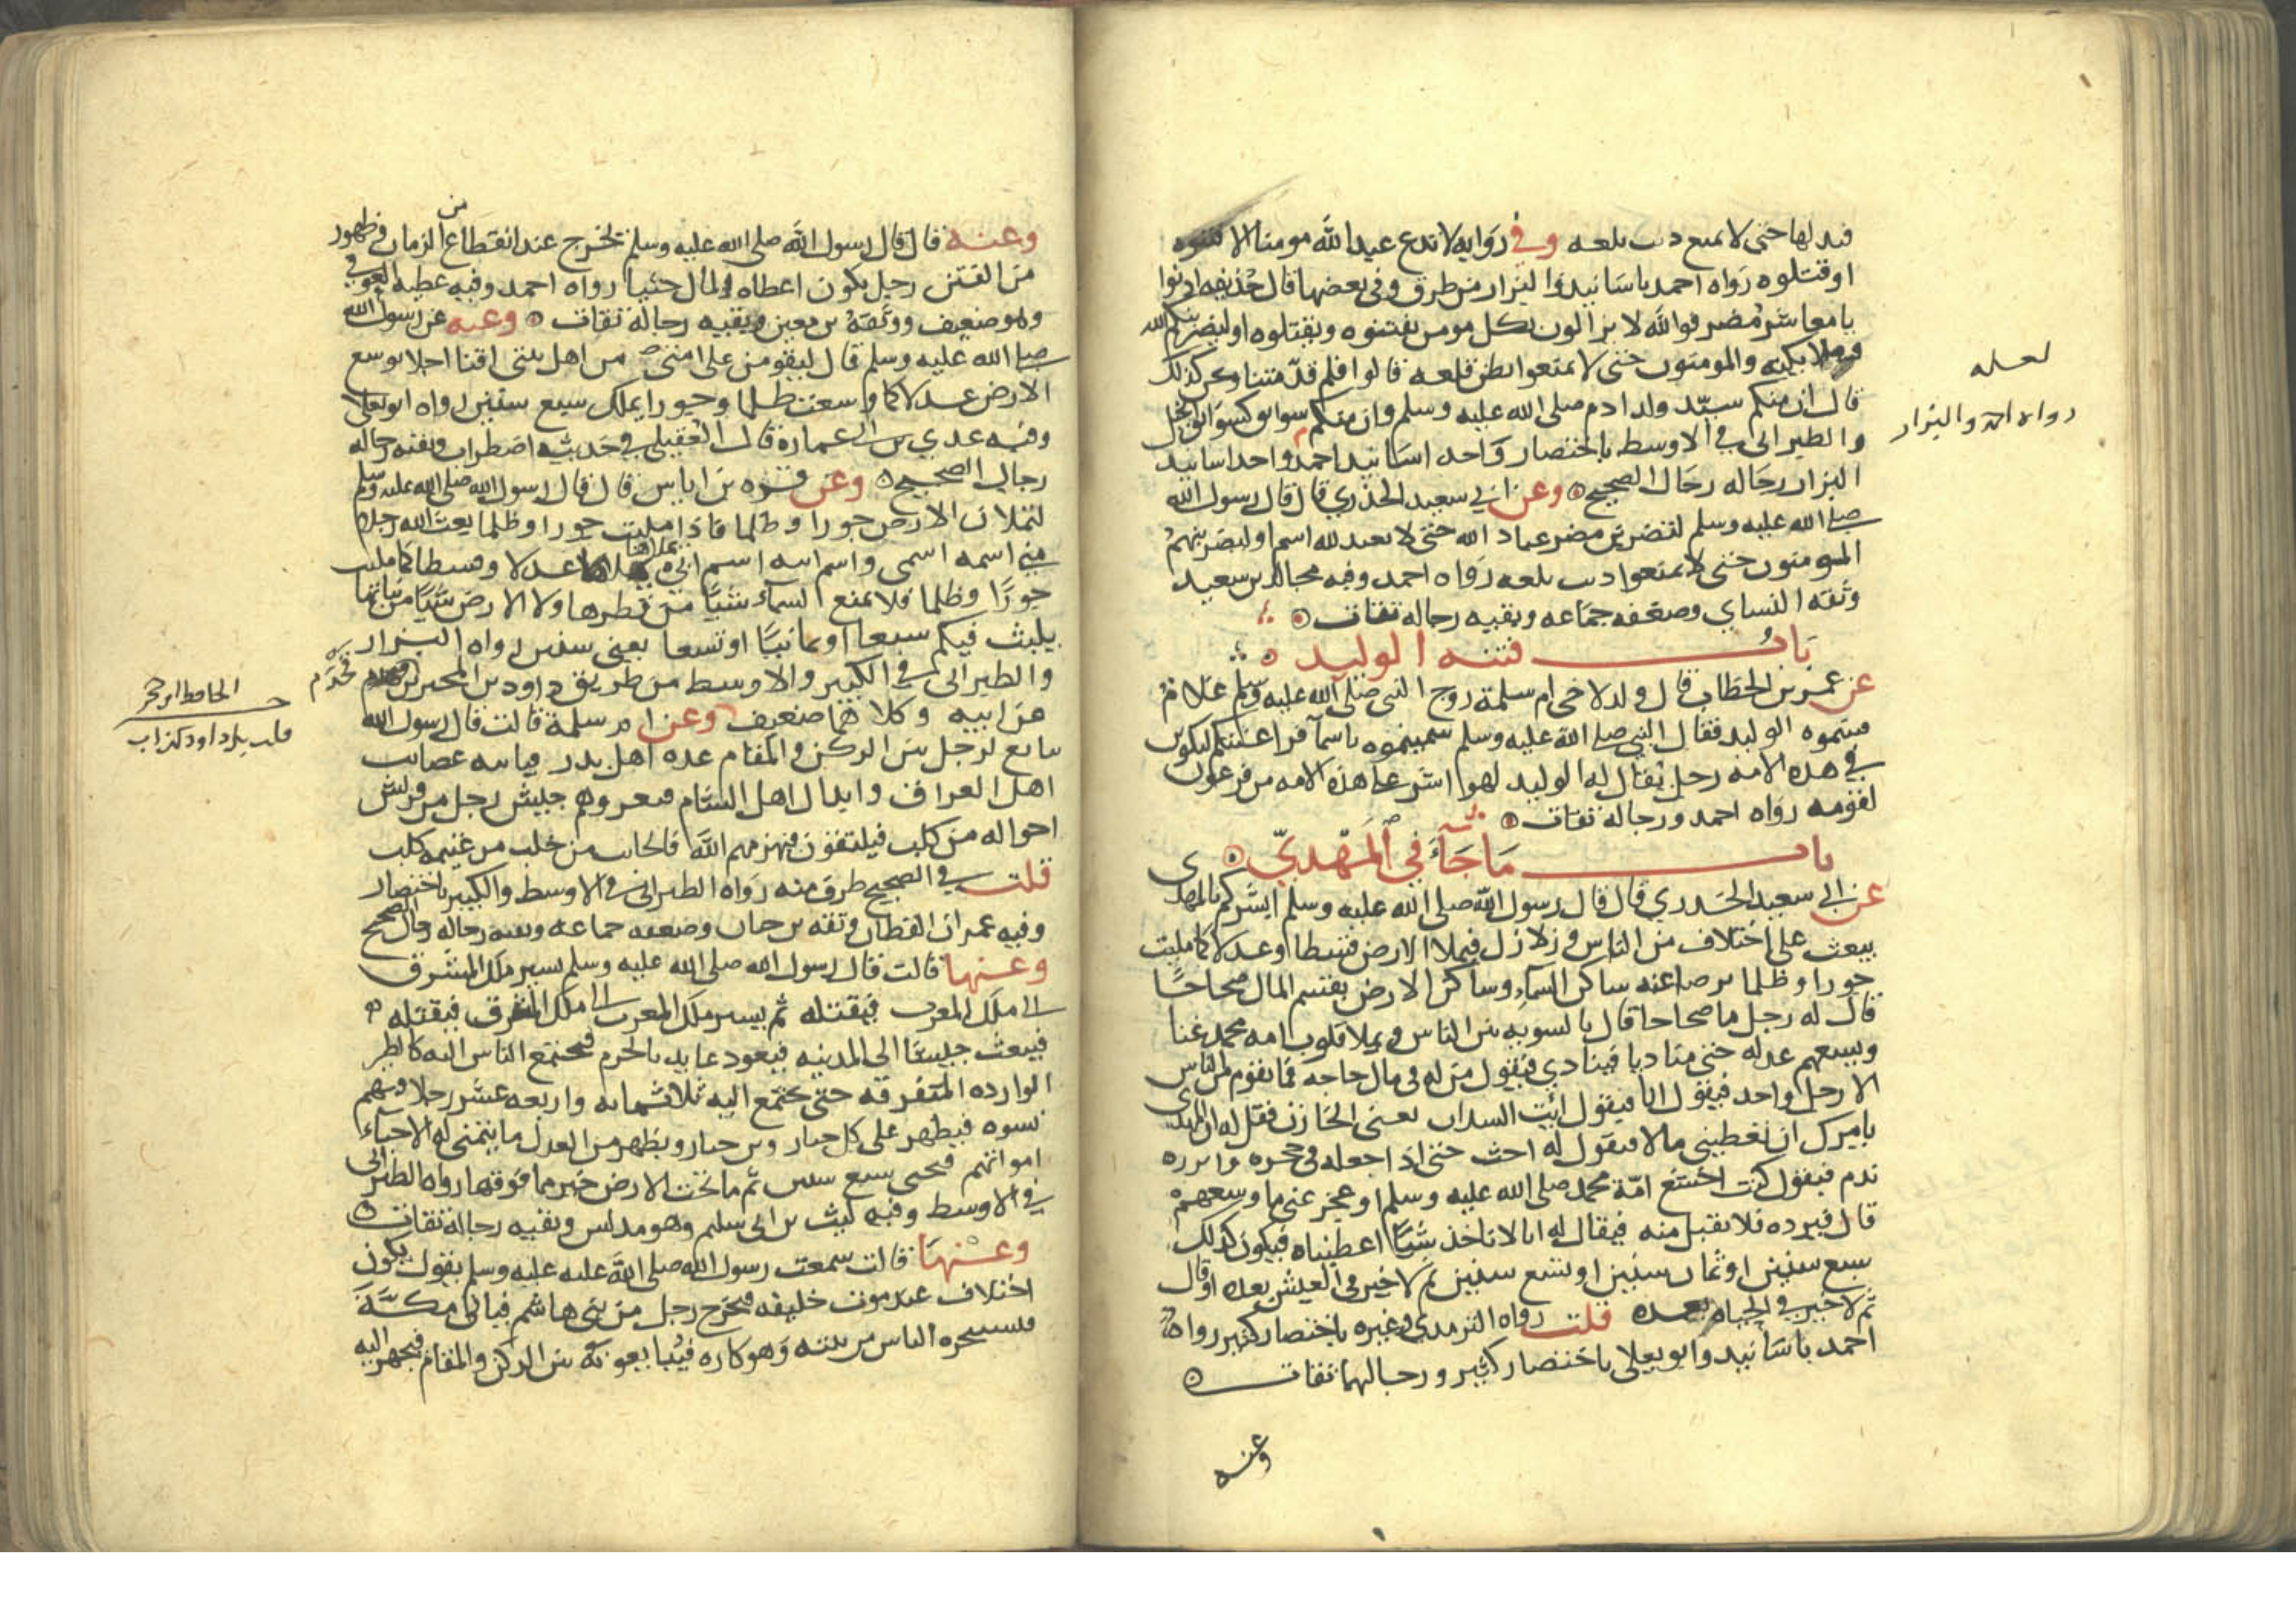 فيدلها حتى لا تمنع ذنب تلعه وفي روايه لا تدع عبدا لله مومنا الا فتنوه
او قتلوه رواه احمد باسانيد والبزار من طرق وفي بعضها قال حذيفه ادنوا
يا معاشر مضر فوالله لا يزالون بكل مومن يفتنوه ويقتلوه او ليضربنكم الله
وملايكته والمومنون حتى لا تمنعوا بطن تلعه قالوا فلم تدنينا ونحن كذلك
قال ان منكم سيد ولد ادم صلى الله عليه وسلم وان منكم سوابق كسوابق الخيل
والطبراني في الاوسط باختصار واحد اسانيد احمد واحد اسانيد
البزار رجاله رجال الصحيح وعن ابي سعيد الخدري قال قال رسول الله
صلى الله عليه وسلم لتضربن مضر عباد الله حتى لا يعبد لله اسم او ليضربنهم
المومنون حتى لا يمنعوا ذنب تلعه رواه احمد وفيه مجالد بن سعيد
وثقه النساي وضعفه جماعه وبقيه رجاله ثقات
باب فتنه الوليد
عن عمر بن الخطاب قال ولد لاخي ام سلمة زوج النبي صلى الله عليه وسلم غلام
فسموه الوليد فقال النبي صلى الله عليه وسلم سميتموه باسما فراعنتكم ليكونن
في هذه الامه رجل يقال له الوليد لهو اشر على هذه الامه من فرعون
لقومه رواه احمد ورجاله ثقات
باب ما جاء في المهديّ
عن ابي سعيد الخدري قال قال رسول الله صلى الله عليه وسلم ابشركم بالمهدي
يبعث على اختلاف من الناس وزلازل فيملا الارض قسطا وعدلا كما مليت
جورا وظلما يرضا عنه ساكن السماء وساكن الارض يقسم المال صحاحا
قال له رجل ما صحاحا قال بالسويه بين الناس ويملا قلوب امه محمد غنا
ويسعهم عدله حتى مناديا فينادي فيقول من له في مال حاجه فما يقوم من الناس
الا رجل واحد فيقول انا فيقول ائت السدان يعني الخازن فقل له ان المهدي
يامرك ان تعطيني مالا فيقول له احث حتى اذا جعله في حجره وابرزه
ندم فيقول كنت اجشع امة محمد صلى الله عليه وسلم او عجز عني ما وسعهم
قال فيرده فلا يقبل منه فيقال له انا لا ناخذ شيئا اعطيناه فيكون كذلك
سبع سنين او ثمان سنين او تسع سنين ثم لا خير في العيش بعده او قال
ثم لا خير في الحياه بعده قلت رواه الترمذي وغيره باختصار كثير رواه
احمد باسانيد وابو يعلى باختصار كثير ورجالهما ثقات
وعنه
لعله
رواه احمد والبزار
وعنه قال قال رسول الله صلى الله عليه وسلم يخرج عند انقطاع من الزمان وظهور
من الفتن رجل يكون اعطاه المال حثيا رواه احمد وفيه عطيه العوفي
وهو ضعيف ووثقه بن معين وبقيه رجاله ثقات وعنه عن رسول الله
صلى الله عليه وسلم قال ليقومن على امتي من اهل بيتي اقنا اجلا يوسع
الارض عدلا كما وسعت ظلما وجورا يملك سبع سنين رواه ابو يعلى
وفيه عدي بن ابي عماره قال العقيلي في حديثه اضطراب وبقيه رجاله
رجال الصحيح وعن قره بن اياس قال قال رسول الله صلى الله عليه وسلم
لتملان الارض جورا وظلما فاذا مليت جورا وظلما يبعث الله رجلا
مني اسمه اسمي واسم ابيه اسم ابي يملاها عدلا وقسطا كما مليت
جورًا وظلما فلا تمنع السماء شيئا من قطرها ولا الارض شيئا من نباتها
يلبث فيكم سبعا او ثمانيا او تسعا يعني سنين رواه البزار
والطبراني في الكبير والاوسط من طريق داود بن المحبر بن قحذم
عن ابيه وكلاهما ضعيف وعن ام سلمة قالت قال رسول الله
يبايع لرجل بين الركن والمقام عده اهل بدر فياتيه عصايب
اهل العراق وابدال اهل الشام فيغزوهم جيش رجل من قريش
اخواله من كلب فيلتقون فيهزمهم الله فالخايب من خاب من غنيمه كلب
قلت في الصحيح طرف منه رواه الطبراني في الاوسط والكبير باختصار
وفيه عمران القطان وثقه بن حبان وضعفه جماعه وبقيه رجاله رجال الصحيح
وعنها قالت قال رسول الله صلى الله عليه وسلم يسير ملك المشرق
الى ملك المغرب فيقتله ثم يسير ملك المغرب الى ملك المشرق فيقتله
فيبعث جيشا الى المدينه فيعوذ عايذ بالحرم فيجتمع الناس اليه كالطير
الوارده المتفرقه حتى يجتمع اليه ثلاثمايه واربعه عشر رجلا فيهم
نسوه فيظهر على كل جبار وبن جبار ويظهر من العدل ما يتمنى له الاحياء
امواتهم فيحيى سبع سنين ثم ما تحت الارض خير مما فوقها رواه الطبراني
في الاوسط وفيه ليث بن ابي سليم وهو مدلس وبقيه رجاله ثقات
وعنها قالت سمعت رسول الله صلى الله عليه عليه وسلم يقول يكون
اختلاف عند موت خليفه فيخرج رجل من بني هاشم فياتي مكة
فيستخرجه الناس من بيته وهو كاره فيبايعونه بين الركن والمقام فيجهز اليه
الحافظ ابن حجر
قلت بل داود كذاب